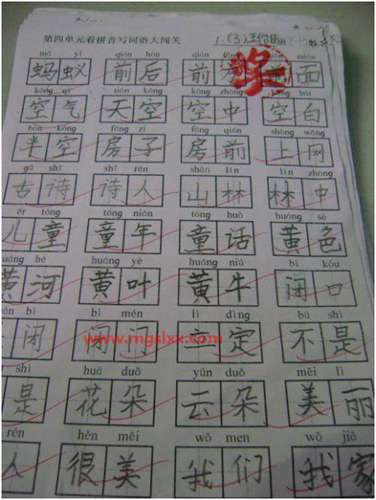 第四单元看拼音写词语大闯关
mǎ yǐ qián hòu qián
蚂蚁 前后 前 面
kōng qì tiān kōng kōng zhōng kòng bái
空气 天空 空中 空白
bàn kōng fáng zi fáng qián shàng wǎng
半空 房子 房前 上网
gǔ shī shī rén shān lín lín zhōng
古诗 诗人 山林 林中
ér tóng tóng nián tóng huà huáng sè
儿童 童年 童话 黄色
huáng hé huáng yè huáng niú bì kǒu
黄河 黄叶 黄牛 闭口
bì mén lì dìng bú shì
闭 闭门 立定 不是
shì huā duǒ yún duǒ měi lì
是 花朵 云朵 美丽
rén hěn měi wǒ men wǒ jiā
人 很美 我们 我家
www.mgslxx.com